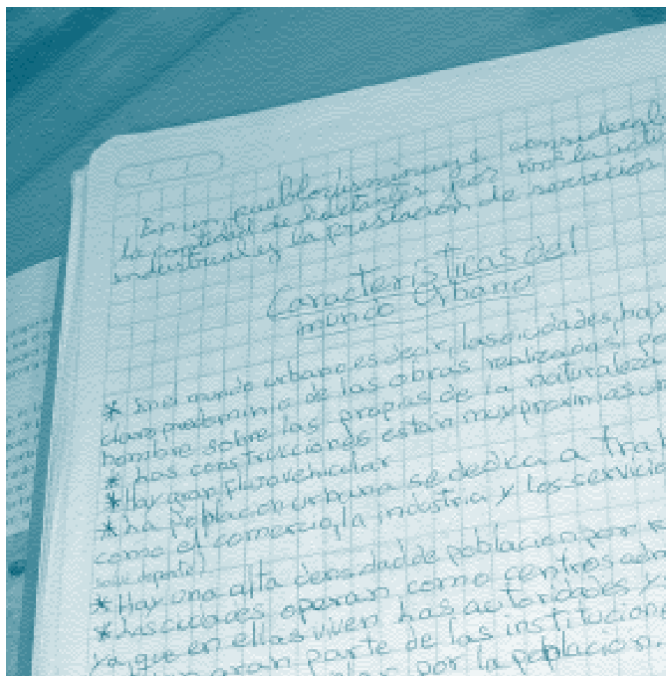 En un pueblo disminuye considerabl
la cantidad de habitantes por km² la acti
industrial y la prestación de servicios
Características del
mundo Urbano
* En el mundo urbano es decir, las ciudades, hay
claro predominio de las obras realizadas po
hombre sobre las propias de la naturaleza
* Las construcciones están muy próximas
* Hay gran flujo vehicular
* La población urbana se dedica a trab
como el comercio, la industria y los servicio
* Hay una alta densidad de población por
* Las ciudades operan como centros adm
ya que en ellas viven las autoridades y
gran parte de las institucion
por la población.